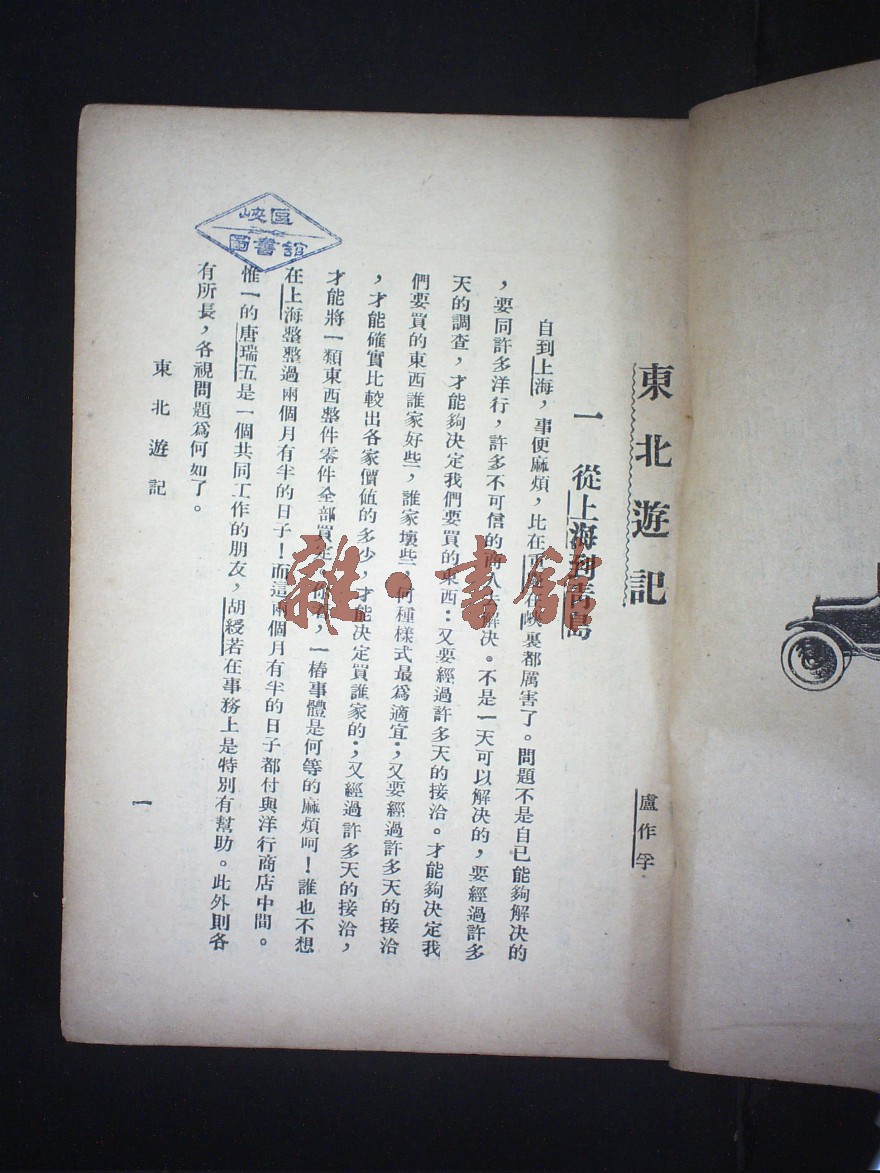 東北遊記
盧作孚
一 從上海到青島
自到上海，事便麻煩，比在重慶在峽裏都厲害了。問題不是自已能夠解决的
，要同許多洋行，許多不可信的商人去解决。不是一天可以解决的，要經過許多
天的調查，才能夠决定我們要買的東西：又要經過許多天的接洽。才能夠决定我
們要買的東西誰家好些，誰家壞些，何種樣式最爲適宜；又要經過許多天的接洽
，才能確實比較出各家價値的多少，才能决定買誰家的；又經過許多天的接洽，
才能將一類東西整件零件全部買定。你看，一樁事體是何等的麻煩呵！誰也不想
在上海整整過兩個月有半的日子！而這兩個月有半的日子都付與洋行商店中間。
惟一的唐瑞五是一個共同工作的朋友，胡綬若在事務上是特別有幫助。此外則各
有所長，各視問題爲何如了。
東北遊記
一
峽區
圖書館
雜·書館